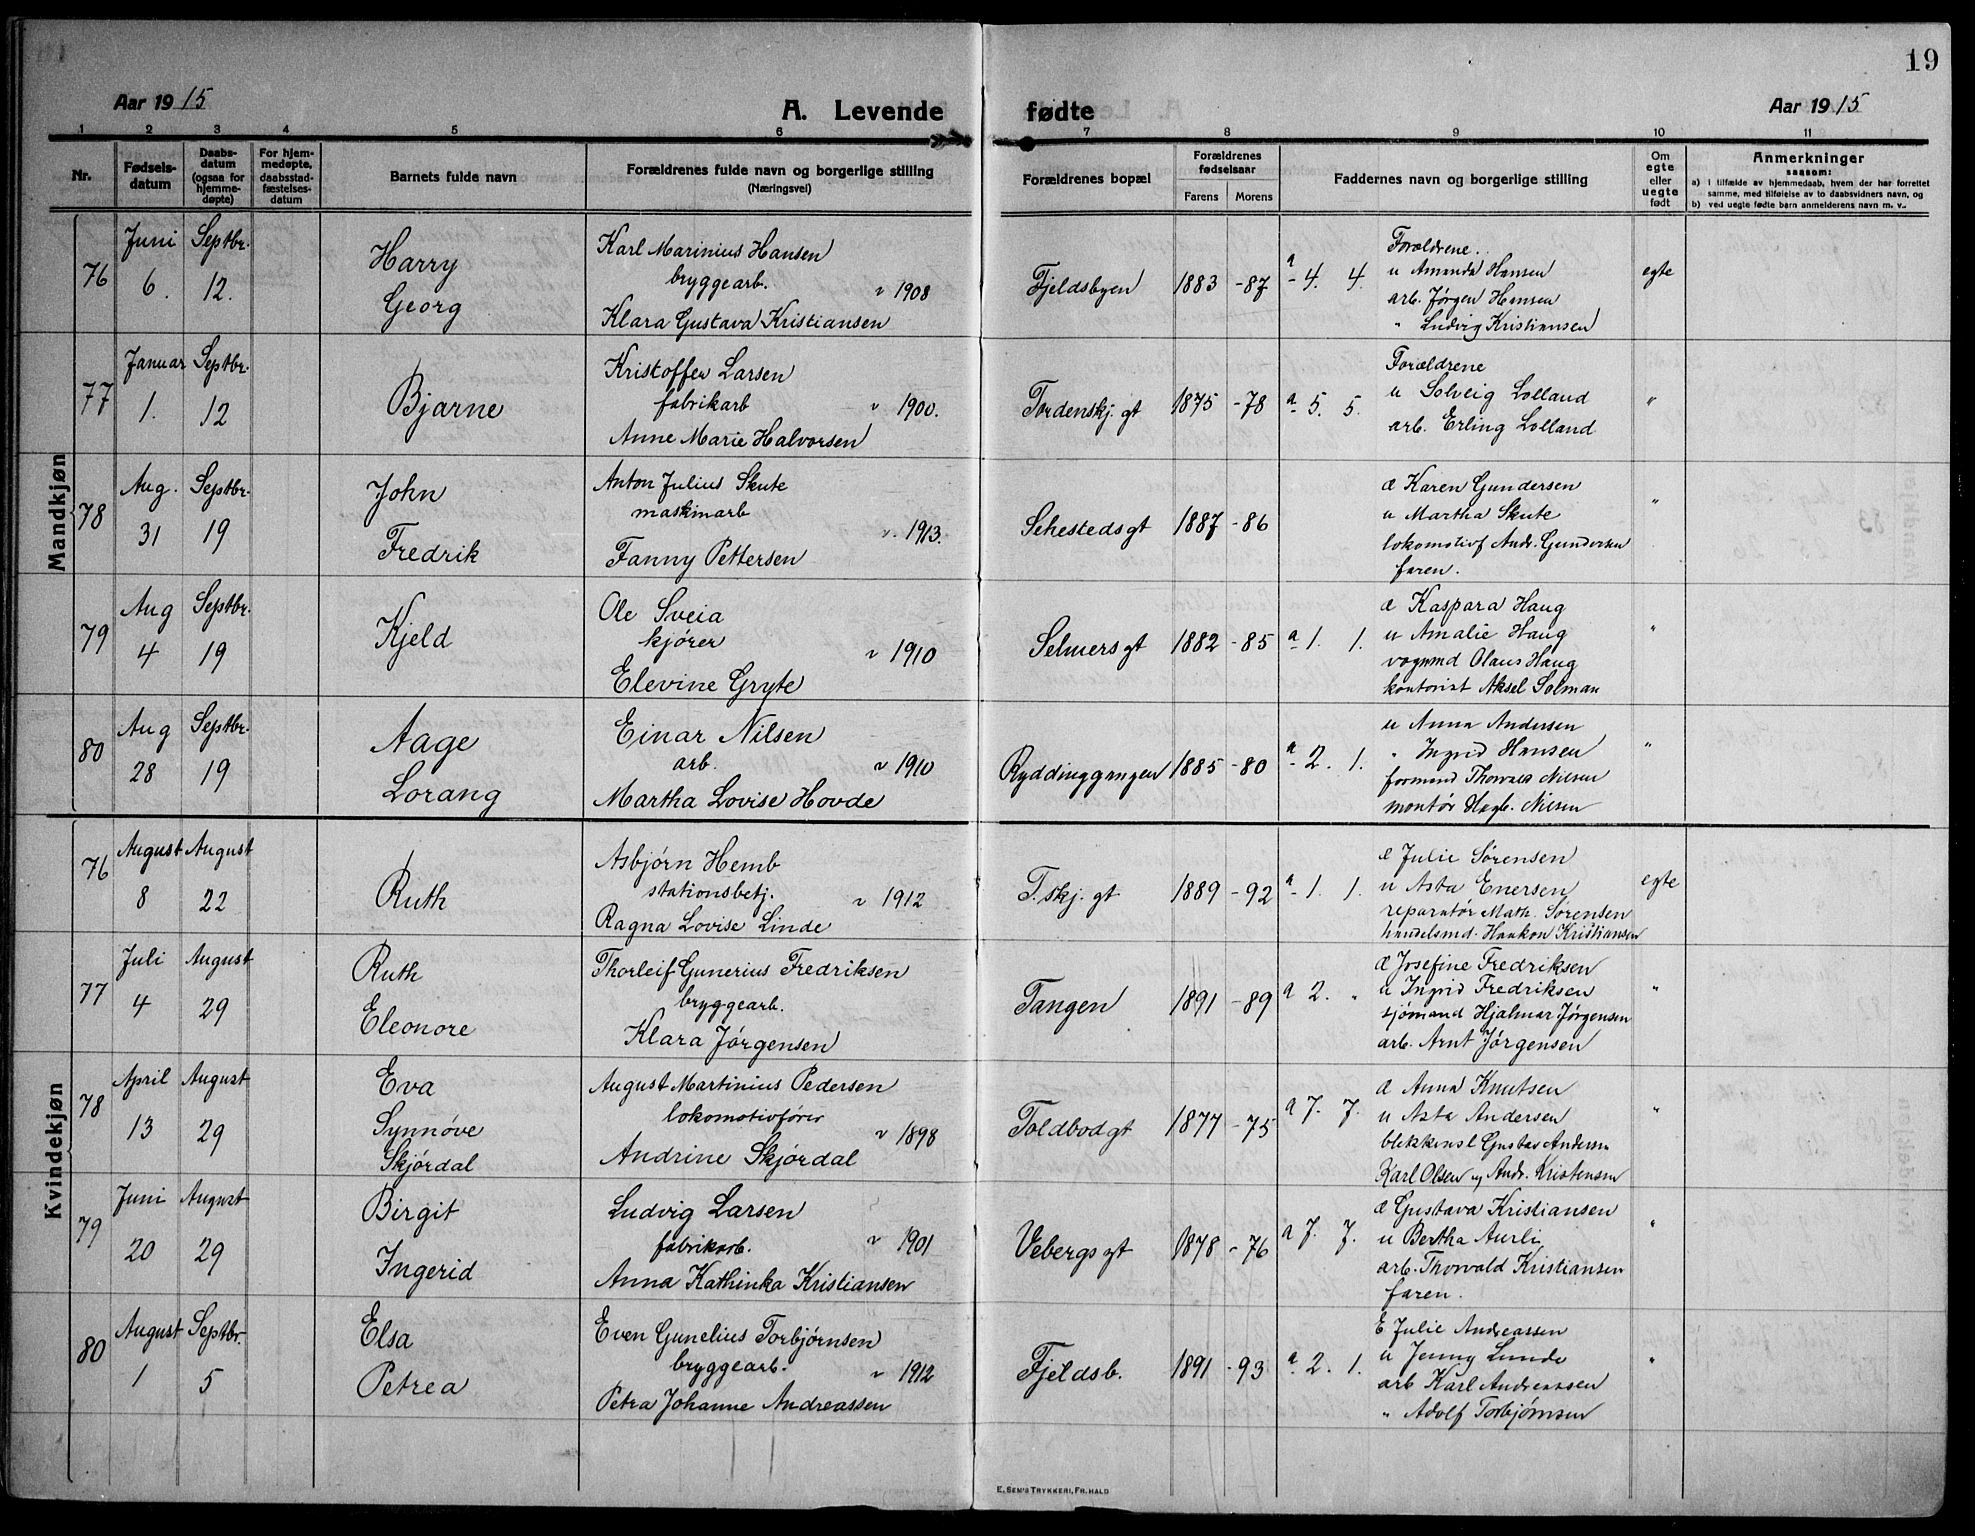 19
Aar 1915
A. Levende fødte
Aar 1915
1 2 3 4 5 6 7 8 9 10 11
Nr.
Fødselsdatum
Daabsdatum (ogsaa for hjemmedøpte)
For hjemmedøpte, daabsstadfæstelsesdatum
Barnets fulde navn
Forældrenes fulde navn og borgerlige stilling
(Næringsvei)
Forældrenes bopæl
Forældrenes fødselsaar
Farens Morens
Faddernes navn og borgerlige stilling
Om egte eller uegte født
Anmerkninger
saasom:
a) i tilfælde av hjemmedaab, hvem der har forrettet
samme, med tilføielse av to daabsvidners navn, og
b) ved uegte fødte barn anmelderens navn m. v..
Mandkjøn
76
Juni
6.
Septbr.
12.
Harry
Georg
Karl Marinius Hansen
bryggearb.
" 1908
Klara Gustava Kristiansen
Fjeldsbyen
1883 - 87
a 4. 4.
Forældrene
u Amanda Hansen
arb. Jørgen Hansen
" Ludvig Kristiansen
egte
77
Januar
1.
Septbr.
12
Bjarne
Kristoffer Larsen
fabrikarb
" 1900.
Anne Marie Halvorsen
Tordenskj. gt
1875 - 78
a 5. 5.
Forældrene
u Solveig Lolland
arb. Erling Lolland
"
78
Aug.
31
Septbr.
19
John
Fredrik
Anton Julius Skute
maskinarb
" 1913.
Fanny Pettersen
Sehestedsgt
1887 - 86
æ Karen Gundersen
u Martha Skute
lokomotivf Andr. Gundersen
faren.
"
79
Aug
4
Septbr.
19
Kjeld
Ole Sveia
kjører
" 1910
Elevine Gryte
Selmersgt
1882 - 85
a 1. 1.
æ Kaspara Haug
u Amalie Haug
vognmd Olaus Haug
kontorist Aksel Solman
"
80
Aug
28
Septbr.
19
Aage
Lorang
Einar Nilsen
arb.
" 1910
Martha Lovise Hovde
Ryddinggangen
1885 - 80
a 2. 1.
u Anna Andersen
" Ingrid Hansen
formand Thorvald Nilsen
montør Hagb. Nilsen
"
Kvindekjøn
76
August
8
August
22
Ruth
Asbjørn Hemb
stationsbetj.
" 1912
Ragna Lovise Linde
T.skj. gt
1889 - 92
a 1. 1.
æ Julie Sørensen
u Asta Enersen
reparatør Math. Sørensen
handelsmd. Haakon Kristiansen
egte
77
Juli
4
August
29
Ruth
Eleonore
Thorleif Gunerius Fredriksen
bryggearb.
Klara Jørgensen
Tangen
1891 - 89
a 2. "
æ Josefine Fredriksen
u Ingrid Fredriksen
sjømand Hjalmar Jørgensen
arb. Arnt Jørgensen
"
78
April
13
August
29
Eva
Synnøve
Skjørdal
August Martinius Pedersen
lokomotivfører
" 1898
Andrine Skjørdal
Toldbodgt
1877 - 75
a 7. 7.
æ Anna Knutsen
u Asta Andersen
blekkensl Gustav Andersen
Karl Olsen og Andr. Kristensen
"
79
Juni
20
August
29
Birgit
Ingerid
Ludvig Larsen
fabrikarb.
" 1901
Anna Kathinka Kristiansen
Vebergs gt
1878 - 76
a 7. 7.
æ Gustava Kristiansen
u Bertha Aurli
arb. Thorvald Kristiansen
faren.
"
80
August
1
Septbr.
5
Elsa
Petrea
Even Gunelius Torbjørnsen
bryggearb.
" 1912
Petra Johanne Andreassen
Fjeldsb.
1891 - 93
a 2. 1.
E Julie Andreassen
u Jenny Lunde
arb Karl Andreassen
" Adolf Torbjørnsen
"
E. SEM'S TRYKKERI, FR.HALD